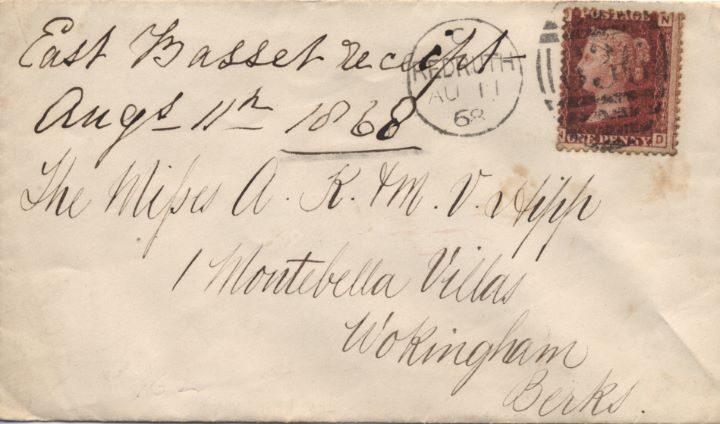 East Basset receipt
Augst 11th 1868
REDRUTH
AU 11
68
POSTAGE
N
ONE PENNY
D
The Misses A. K. & M. V. Hipp
1 Montebella Villas
Wokingham
Berks.